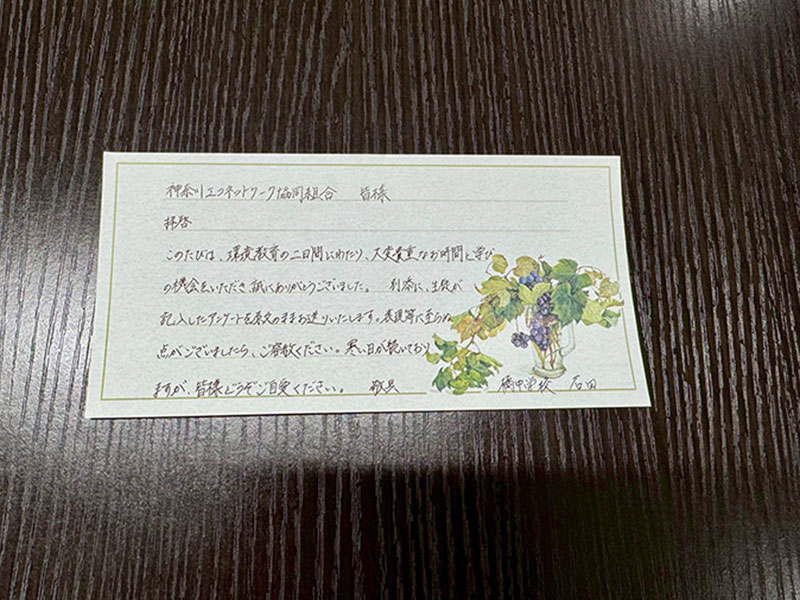 神奈川エコネットワーク協同組合 皆様
拝啓
このたびは、環境教育の二日間にわたり、大変貴重なお時間と学び
の機会をいただき、誠にありがとうございました。 別添に、生徒が
記入したアンケートを原文のままお送りいたします。表現等に至らぬ
点がございましたら、ご容赦ください。寒い日が続いており
ますが、皆様どうぞご自愛ください。 敬具
橘中学校 石田